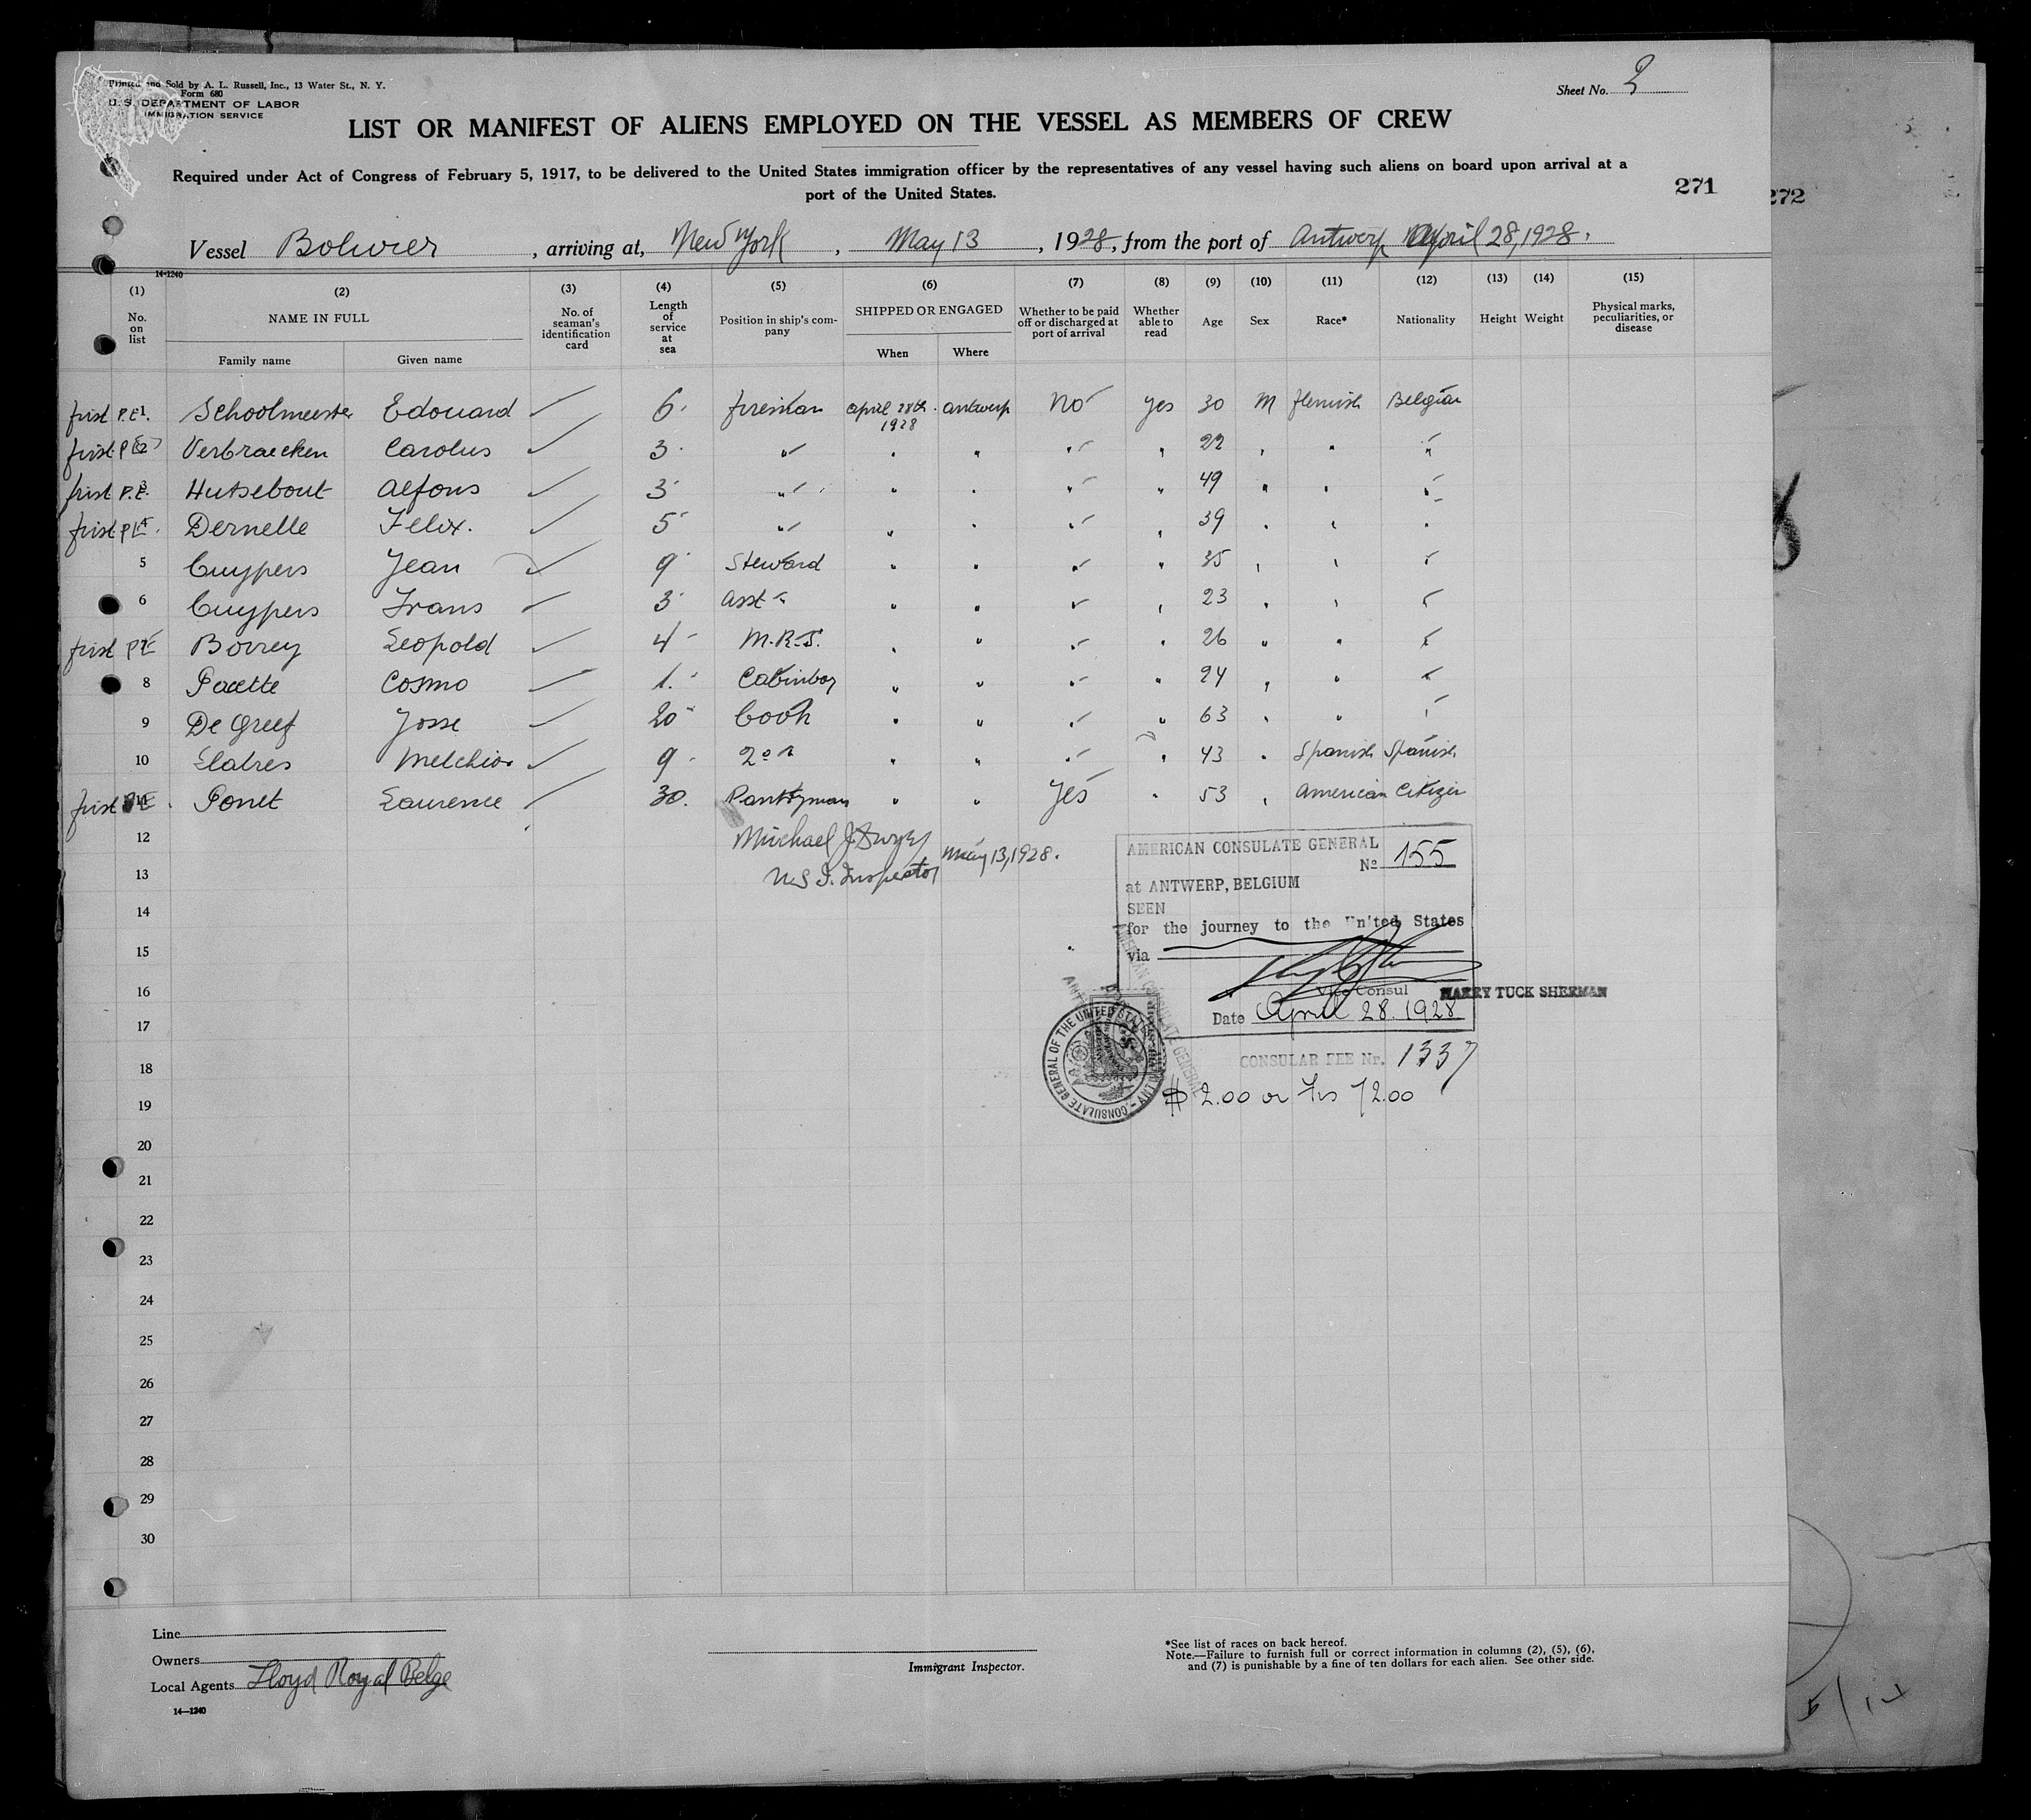 Printed and Sold by A. L. Russell, Inc., 13 Water St., N. Y.
Form 680
U. S. DEPARTMENT OF LABOR
IMMIGRATION SERVICE
Sheet No. 2
LIST OR MANIFEST OF ALIENS EMPLOYED ON THE VESSEL AS MEMBERS OF CREW
Required under Act of Congress of February 5, 1917, to be delivered to the United States immigration officer by the representatives of any vessel having such aliens on board upon arrival at a
port of the United States.
271
272
Vessel , arriving at, New York , May 13 , 1928, from the port of Antwerp April 28, 1928.
14-1240
(1) (2) (3) (4) (5) (6) (7) (8) (9) (10) (11) (12) (13) (14) (15)
No. on list NAME IN FULL No. of seaman's identification card Length of service at sea Position in ship's company SHIPPED OR ENGAGED Whether to be paid off or discharged at port of arrival Whether able to read Age Sex Race* Nationality Height Weight Physical marks, peculiarities, or disease
Family name Given name When Where
first P.E. 1 Schoolmeester Edouard 6 fireman april 28th 1928 antwerp No yes 30 M flemish Belgian
first P.E. 2 Verbraecken Carolus 3 " " " " " 22 " " "
first P.E. 3 Hutsebout Alfons 3 " " " " " 49 " " "
first P.E. 4 Dernelle Felix. 5 " " " " " 39 " " "
5 Cuypers Jean 9 Steward " " " " 35 " " "
6 Cuypers Frans 3 Asst " " " " " 23 " " "
first P.E. 7 Borrey Leopold 4 M.R.S. " " " " 26 " " "
8 Pacette Cosmo 1. Cabinboy " " " " 24 " " "
9 De Greef Josse 20 Cook " " " " 63 " " "
10 Lladres Melchior 9 2° " " " " " 43 " Spanish Spanish
first P.E. 11 Ponet Laurence 30. Pantryman " " Yes " 53 " American Citizen
12
Michael J. Dwyer May 13, 1928.
13
U.S. I. Inspector
AMERICAN CONSULATE GENERAL
No 155
at ANTWERP, BELGIUM
SEEN
for the journey to the United States
via
Vice Consul HARRY TUCK SHERMAN
Date April 28. 1928
CONSULAR FEE Nr. 1337
$ 2.00 or Frs 72.00
14
15
16
17
18
19
20
21
22
23
24
25
26
27
28
29
30
Line
Owners
Local Agents Lloyd Royal Belge
14—1240
Immigrant Inspector.
*See list of races on back hereof.
Note.—Failure to furnish full or correct information in columns (2), (5), (6),
and (7) is punishable by a fine of ten dollars for each alien. See other side.